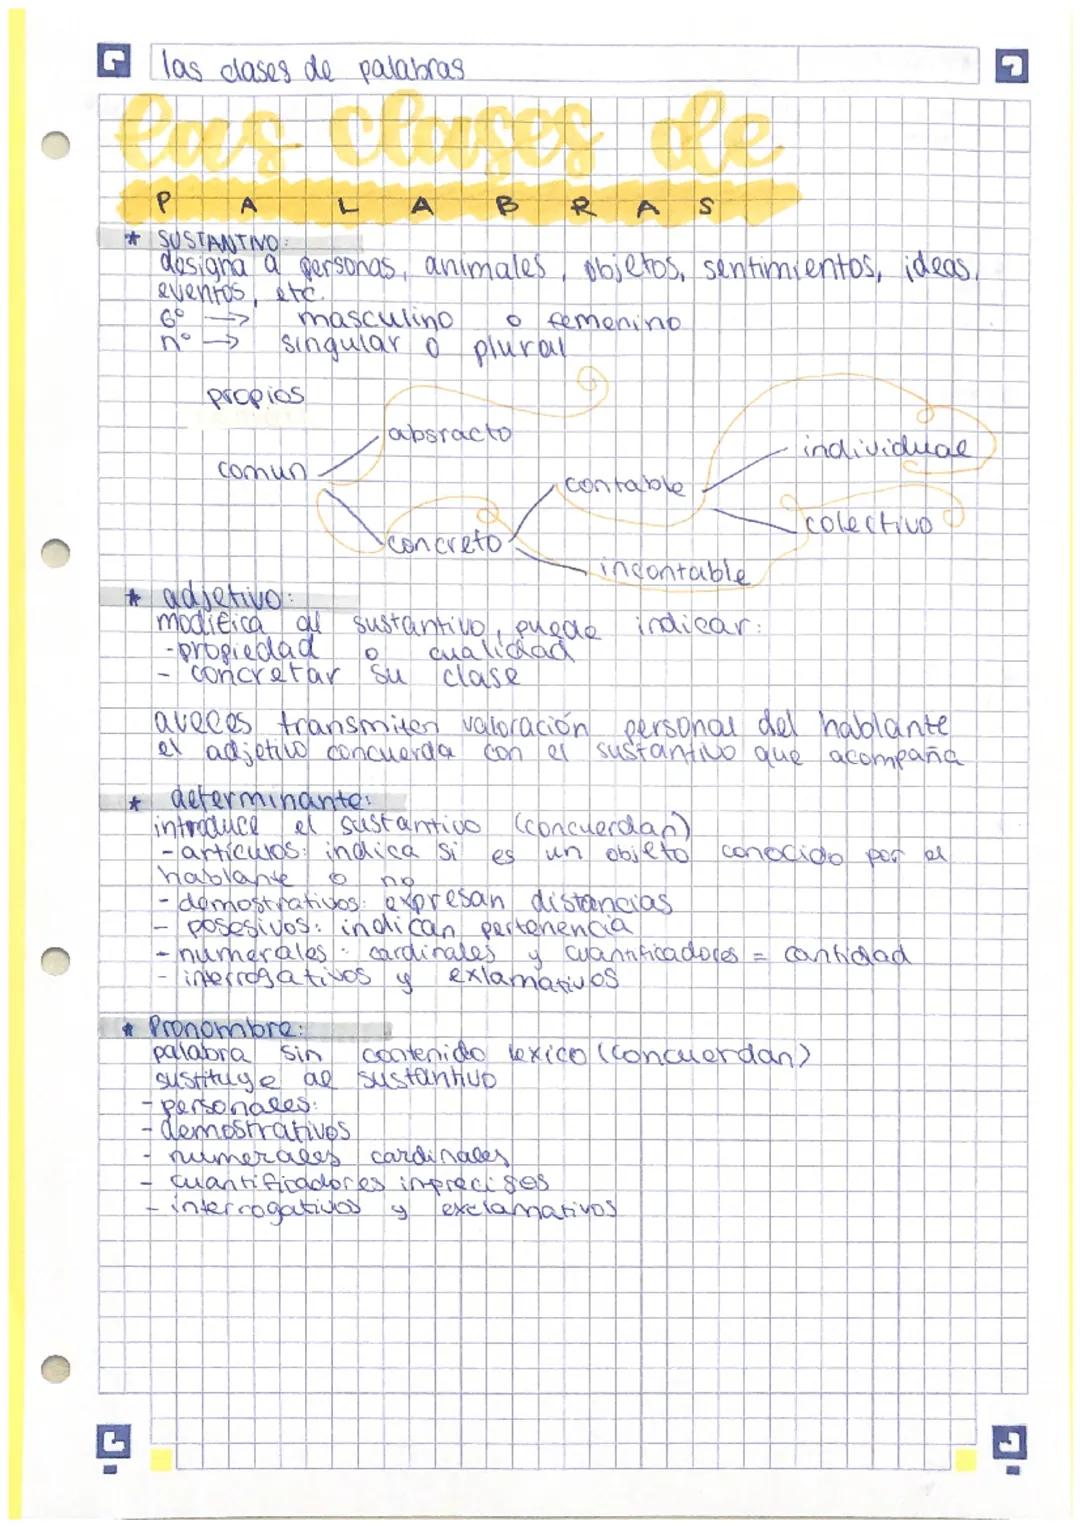 las clases de palabras
las clases de
PALABRAS
* SUSTANTIVO:
designa a personas, animales, objetos, sentimientos, ideas,
eventos, etc.
Gº → masculino o femenino
nº → singular o plural
propios
absracto
individual
comun
contable
colectivo
concreto
incontable
* adjetivo:
modifica al sustantivo, puede indicar:
- propiedad o cualidad
- concretar su clase
aveces transmiten valoración personal del hablante
el adjetivo concuerda con el sustantivo que acompaña
* determinante:
introduce el sustantivo (concuerdan)
- artículos: indica si es un objeto conocido por el
hablante o no
- demostrativos: expresan distancias
- posesivos: indican pertenencia
- numerales: cardinales y cuantificadores = cantidad
- interrogativos y exlamativos
* Pronombre:
palabra sin contenido lexico (concuerdan)
sustituye al sustantivo
- personales:
- demostrativos
- numerales cardinales
- cuantificadores imprecisos
- interrogativos y exclamativos